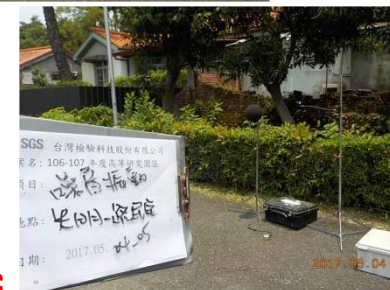 SGS 台灣檢驗科技股份有限公司
案名：106-107年度高等研究園區
項目：噪音振動
地點：光明一路民宅
日期：2017.05.04-05
2017.05.04